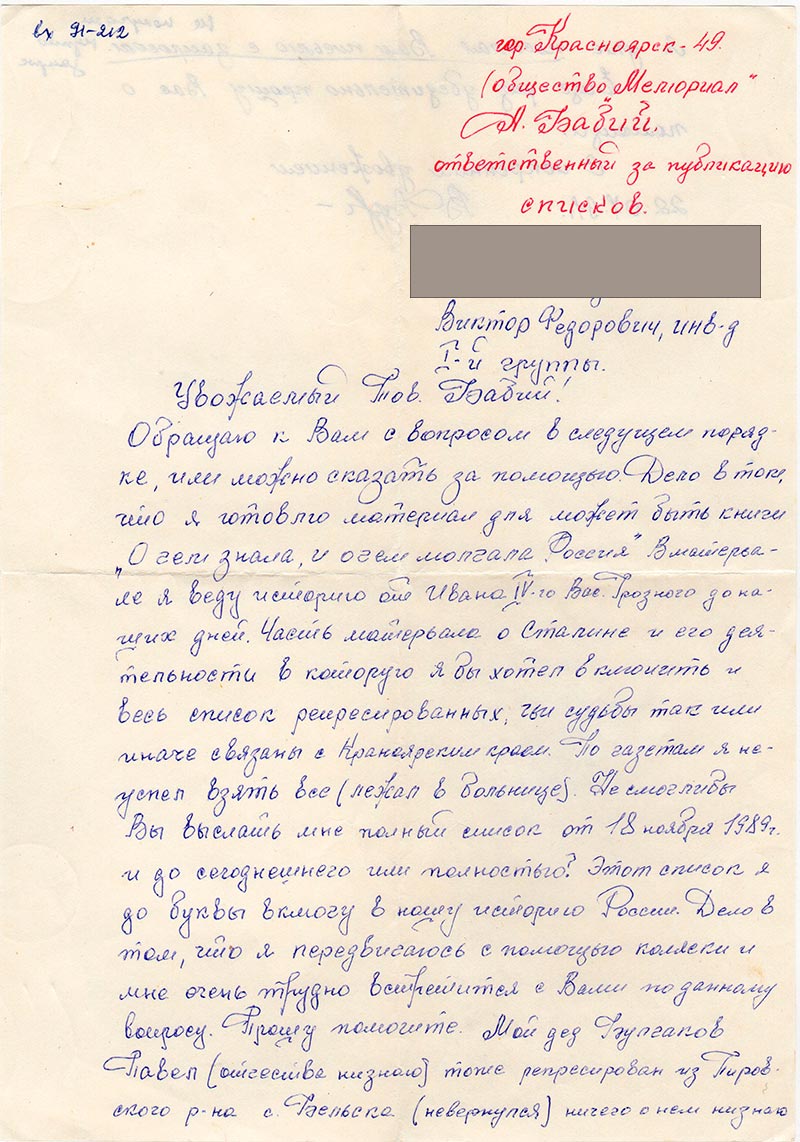 вх 91-212
гор. Красноярск-49.
(общество „Мемориал"
А. Бабий.
ответственный за публикацию
списков.
Виктор Федорович, инв-д
I-й группы.
Уважаемый Тов. Бабий!
Обращаю к Вам с вопросом в следущем поряд-
ке, или можно сказать за помощью. Дело в том,
что я готовлю материал для может быть книги
„О чем знала, и о чем молчала Россия" В матерьа-
ле я веду историю от Ивана IV-го Вас. Грозного до на-
ших дней. Часть матерьала о Сталине и его дея-
тельности в которую я бы хотел включить и
весь список репресированных, чьи судьбы так или
иначе связаны с Краноярским краем. По газетам я не-
успел взять все (лежал в больнице). Не смоглибы
Вы выслать мне полный список от 18 ноября 1989г.
и до сегоднешнего или полностью? Этот список я
до буквы включу в нашу историю России. Дело в
том, что я передвигаюсь с помощью коляски и
мне очень трудно встретится с Вами по данному
вопросу. Прошу помогите. Мой дед Булгаков
Павел (отчества незнаю) тоже репресирован из Пиров-
ского р-на с. Бельска (невернулся) ничего о нем незнаю